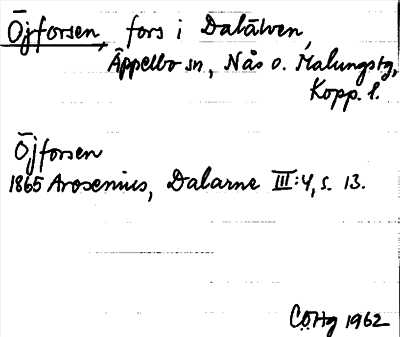 Öjforsen, fors i Dalälven,
Äppelbo sn, Nås o. Malungs tg,
Kopp. l.
Öjforsen
1865 Arosenius, Dalarne III:4, s. 13.
COHg 1962